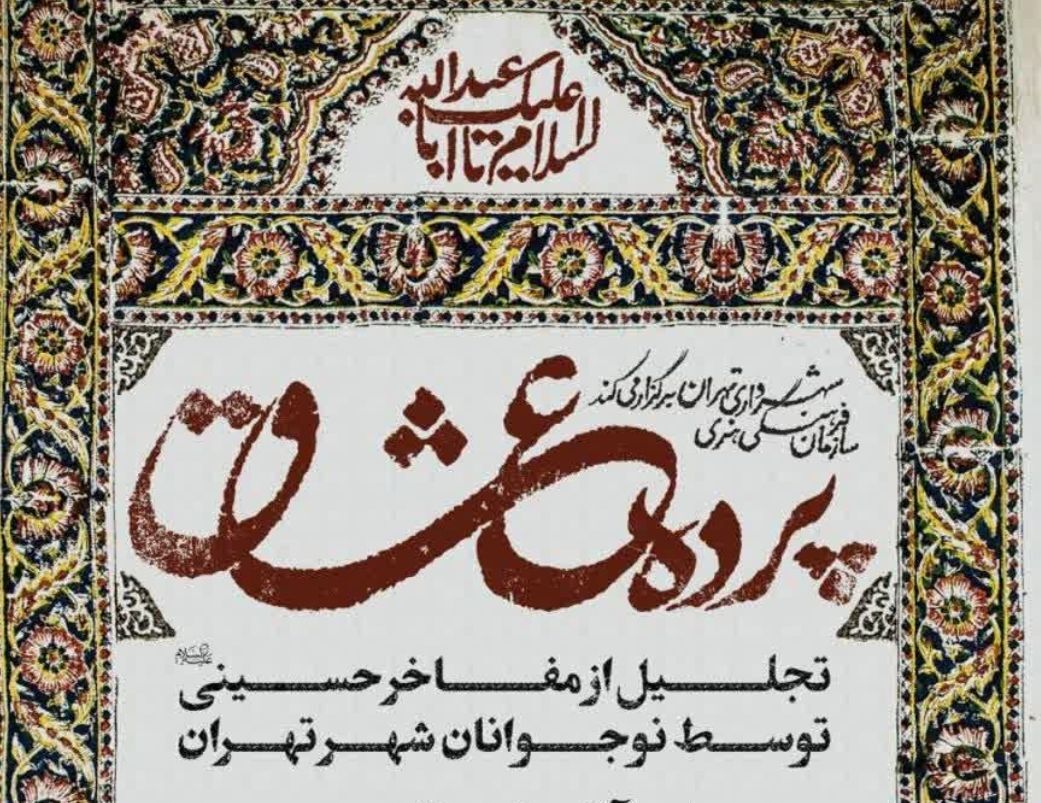 السلام علیک یا اباعبدالله
سازمان فرهنگی هنری
شهرداری تهران برگزار می‌کند
پرده عشاق
تجلیل از مفاخر حسینی علیه‌السلام
توسط نوجوانان شهر تهران